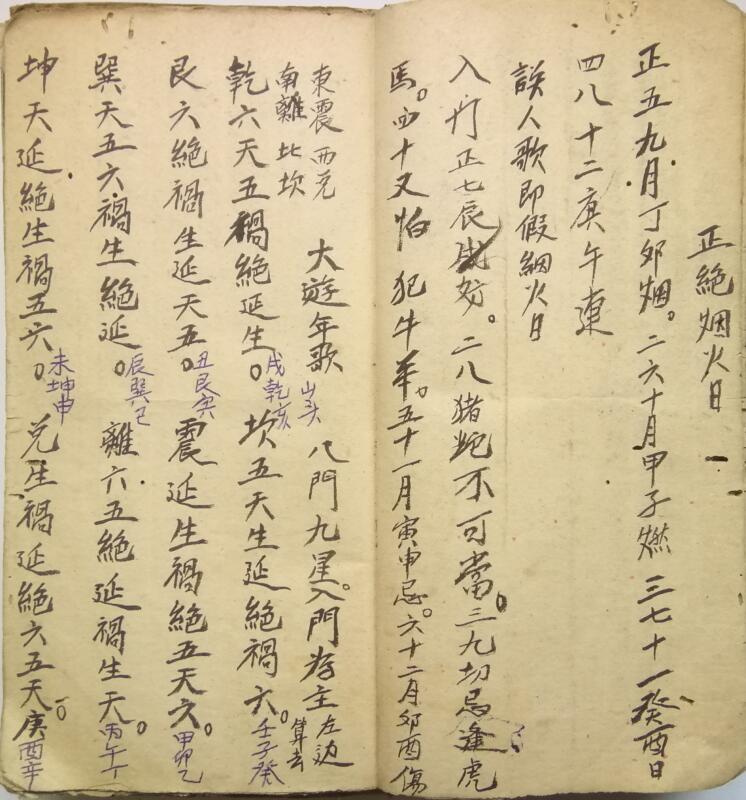 正絕烟火日
正五九月丁卯烟。二六十月甲子燃 三七十一癸酉日
四八十二庚午連
誤人歌即假烟火日
入行正七辰戌妨。二八猪蛇不可當。三九切忌逢虎
馬。四十又怕犯牛羊。五十一月寅申忌。六十二月卯酉傷
東震西兌
南離比坎
大遊年歌 八門九星。入門為主 左边
算去
乾六天五禍絕延生。戌乾亥 坎五天生延絕禍六。壬子癸
艮六絕禍生延天五。丑艮寅 震延生禍絕五天六。甲卯乙
巽天五六禍生絕延。辰巽巳 離六五絕延禍生天。丙午丁
坤天延絕生禍五六。未坤申 兌生禍延絕六五天。庚酉辛